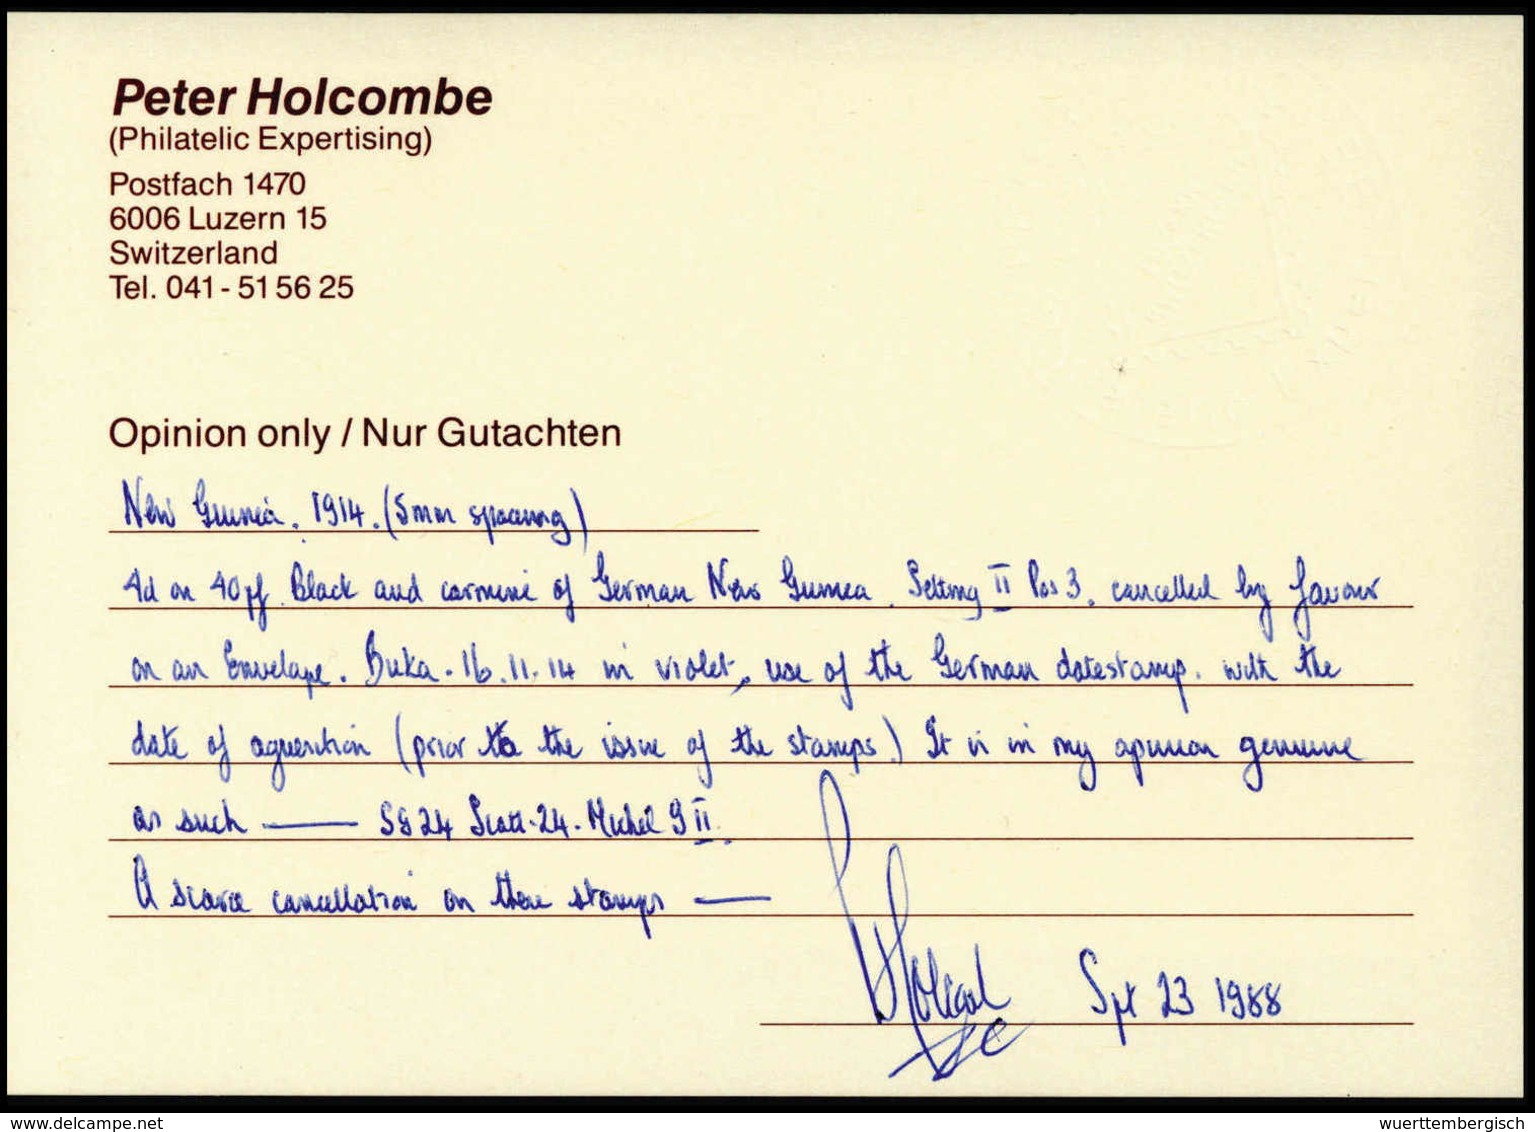 Peter Holcombe
(Philatelic Expertising)
Postfach 1470
6006 Luzern 15
Switzerland
Tel. 041 - 51 56 25
Opinion only / Nur Gutachten
New Guinea. 1914. (5mm spacing)
4d on 40pf. Black and carmine of German New Guinea. Setting II Pos 3. cancelled by favour
on an Envelope. Buka. 16.11.14 in violet, use of the German datestamp. with the
date of aquesition (prior to the issue of the stamps) It is in my opinion genuine
as such —— SG 24 Scott. 24. Michel 9 II.
A scarce cancellation on these stamps ——
P Holcombe Spt 23 1988
www.delcampe.net
wuerttembergisch